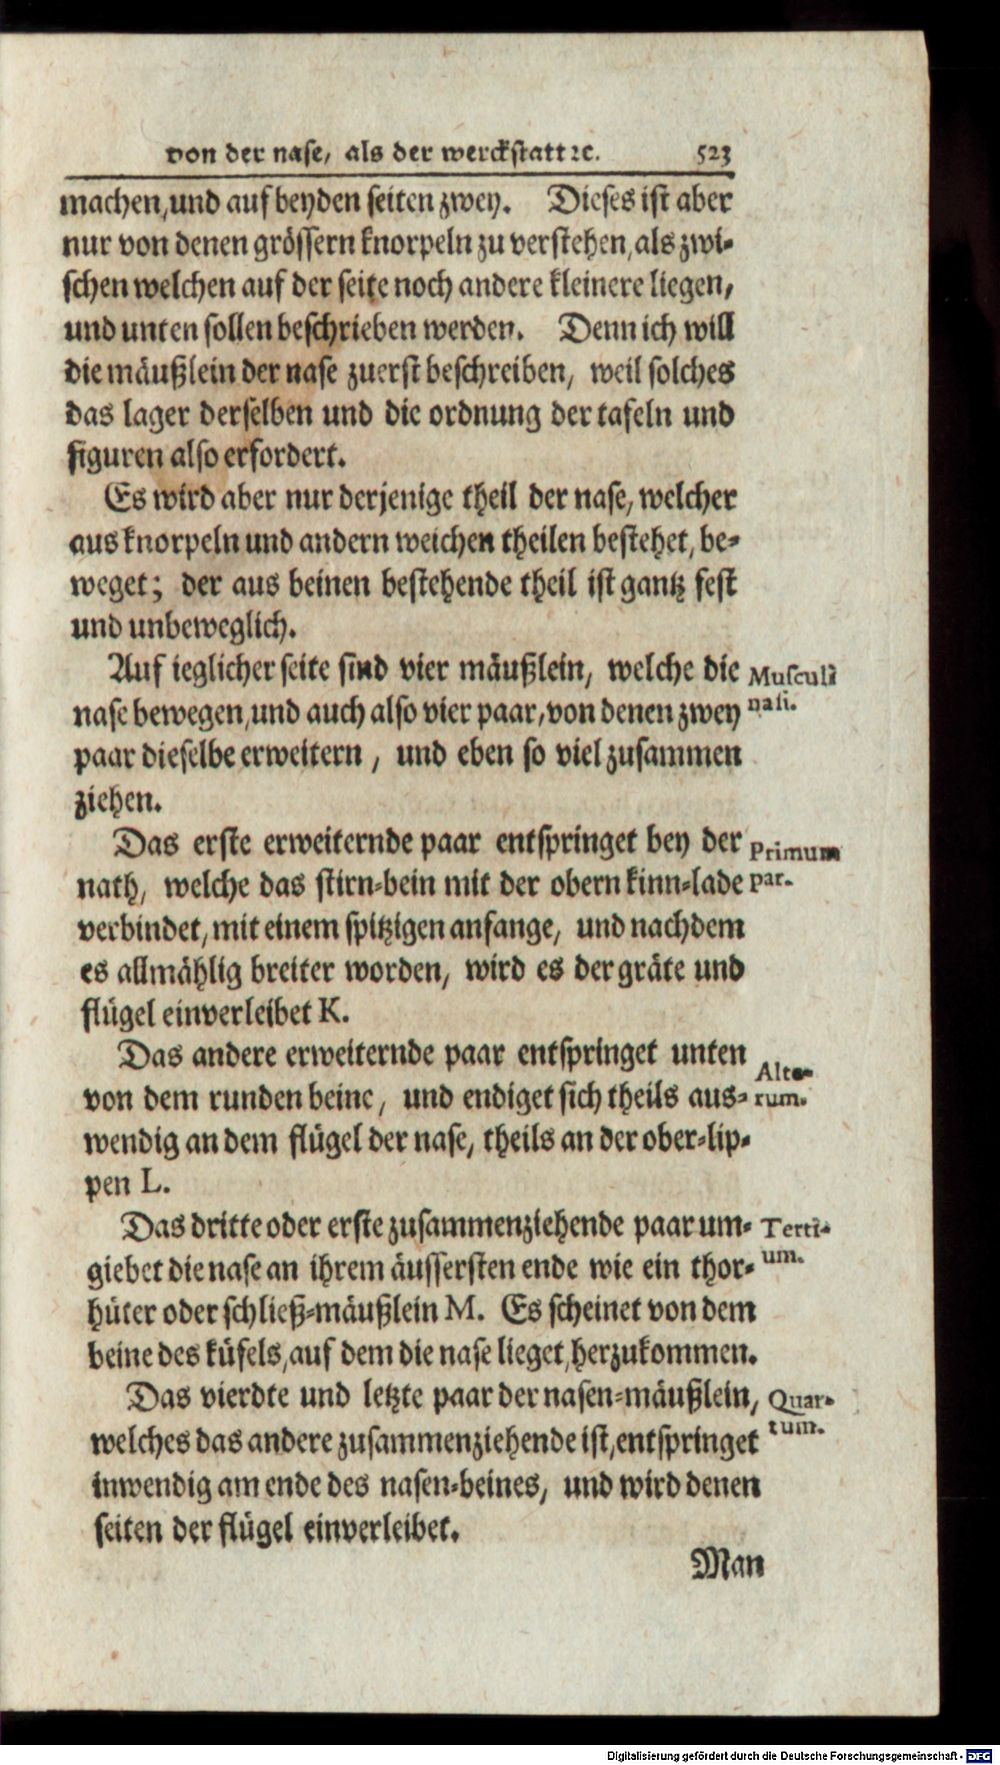 von der nase, als der werckstatt ꝛc. 523
machen, und auf beyden seiten zwey. Dieses ist aber
nur von denen grössern knorpeln zu verstehen, als zwi-
schen welchen auf der seite noch andere kleinere liegen,
und unten sollen beschrieben werden. Denn ich will
die mäußlein der nase zuerst beschreiben, weil solches
das lager derselben und die ordnung der tafeln und
figuren also erfordert.
Es wird aber nur derjenige theil der nase, welcher
aus knorpeln und andern weichen theilen bestehet, be-
weget; der aus beinen bestehende theil ist gantz fest
und unbeweglich.
Auf ieglicher seite sind vier mäußlein, welche die
Musculi
nase bewegen, und auch also vier paar, von denen zwey
nasi.
paar dieselbe erweitern, und eben so viel zusammen
ziehen.
Das erste erweiternde paar entspringet bey der
Primum
nath, welche das stirn-bein mit der obern kinn-lade
par.
verbindet, mit einem spitzigen anfange, und nachdem
es allmählig breiter worden, wird es der gräte und
flügel einverleibet K.
Das andere erweiternde paar entspringet unten
Alte-
von dem runden beine, und endiget sich theils aus-
rum.
wendig an dem flügel der nase, theils an der ober-lip-
pen L.
Das dritte oder erste zusammenziehende paar um-
Terti-
giebet die nase an ihrem äussersten ende wie ein thor-
um.
hüter oder schließ-mäußlein M. Es scheinet von dem
beine des küfels, auf dem die nase lieget, herzukommen.
Das vierdte und letzte paar der nasen-mäußlein,
Quar-
welches das andere zusammenziehende ist, entspringet
tum.
inwendig am ende des nasen-beines, und wird denen
seiten der flügel einverleibet.
Man
Digitalisierung gefördert durch die Deutsche Forschungsgemeinschaft - DFG